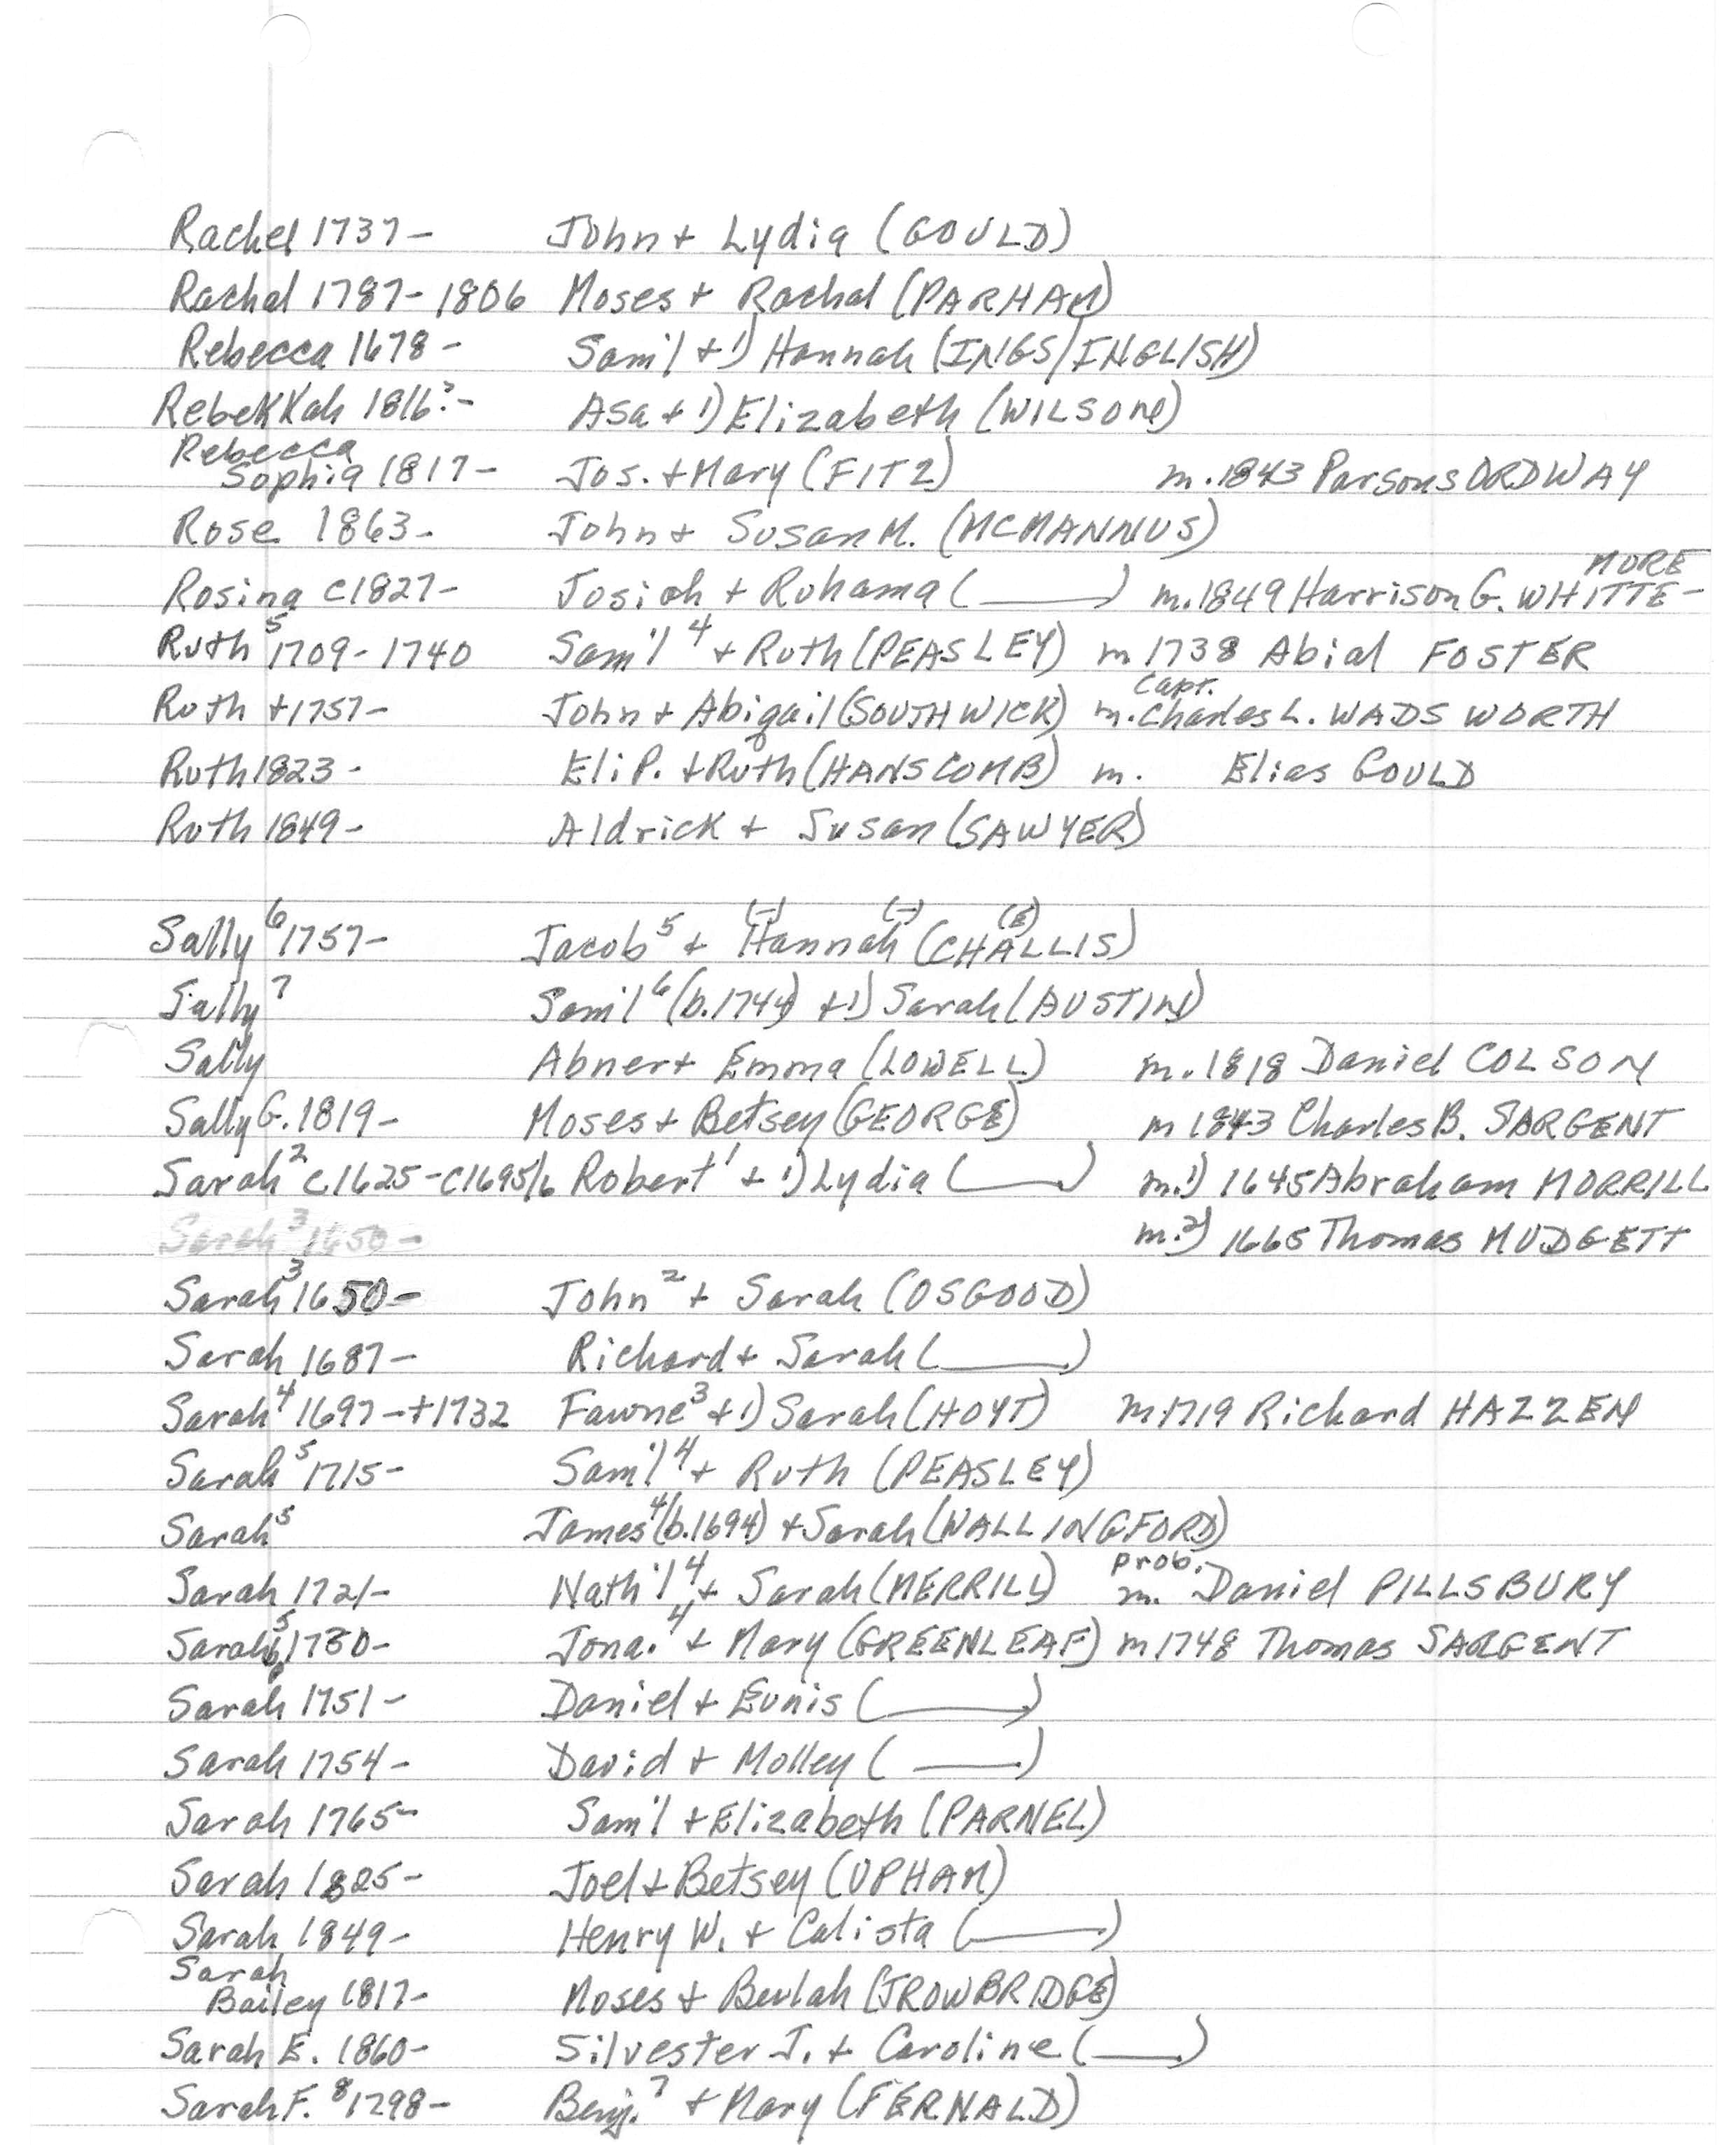 Rachel 1737- John + Lydia (GOULD)
Rachel 1787-1806 Moses + Rachel (PARHAM)
Rebecca 1678- Sam'l + 1) Hannah (INGS/INGLISH)
Rebekkah 1816?- Asa + 1) Elizabeth (WILSON)
Rebecca
Sophia 1817- Jos. + Mary (FITZ) m. 1843 Parsons ORDWAY
Rose 1863- John + Susan M. (MCMANNUS)
MORE
Rosina c1827- Josiah + Ruhama (____) m. 1849 Harrison G. WHITTE-
Ruth⁵ 1709-1740 Sam'l⁴ + Ruth (PEASLEY) m 1738 Abial FOSTER
Capt.
Ruth +1757- John + Abigail (SOUTHWICK) m. Charles L. WADSWORTH
Ruth 1823- Eli P. + Ruth (HANSCOMB) m. Elias GOULD
Ruth 1849- Aldrick + Susan (SAWYER)
(-) (-) (E)
Sally⁶ 1757- Jacob⁵ + Hannah (CHALLIS)
Sally⁷ Sam'l⁶ (b.1744) + 1) Sarah (AUSTIN)
Sally Abner + Emma (LOWELL) m. 1818 Daniel COLSON
Sally G. 1819- Moses + Betsey (GEORGE) m 1843 Charles B. SARGENT
Sarah² c1625-c1695/6 Robert¹ + 1) Lydia (____) m.1) 1645 Abraham MORRILL
Sarah³ 1650- m.2) 1665 Thomas MUDGETT
Sarah³ 1650- John² + Sarah (OSGOOD)
Sarah 1687- Richard + Sarah (____)
Sarah⁴ 1697-+1732 Fawne³ + 1) Sarah (HOYT) m 1719 Richard HAZZEN
Sarah⁵ 1715- Sam'l⁴ + Ruth (PEASLEY)
Sarah⁵ James⁴ (b.1694) + Sarah (WALLINGFORD)
prob.
Sarah 1721- Nath'l⁴ + Sarah (MERRILL) m. Daniel PILLSBURY
Sarah⁵ 1730- Jona.⁴ + Mary (GREENLEAF) m 1748 Thomas SARGENT
Sarah 1751- Daniel + Eunis (____)
Sarah 1754- David + Molley (____)
Sarah 1765- Sam'l + Elizabeth (PARNEL)
Sarah 1825- Joel + Betsey (UPHAM)
Sarah 1849- Henry W. + Calista (____)
Sarah
Bailey 1817- Moses + Beulah (TROWBRIDGE)
Sarah E. 1860- Silvester J. + Caroline (____)
Sarah F.⁸ 1798- Benj.⁷ + Mary (FERNALD)